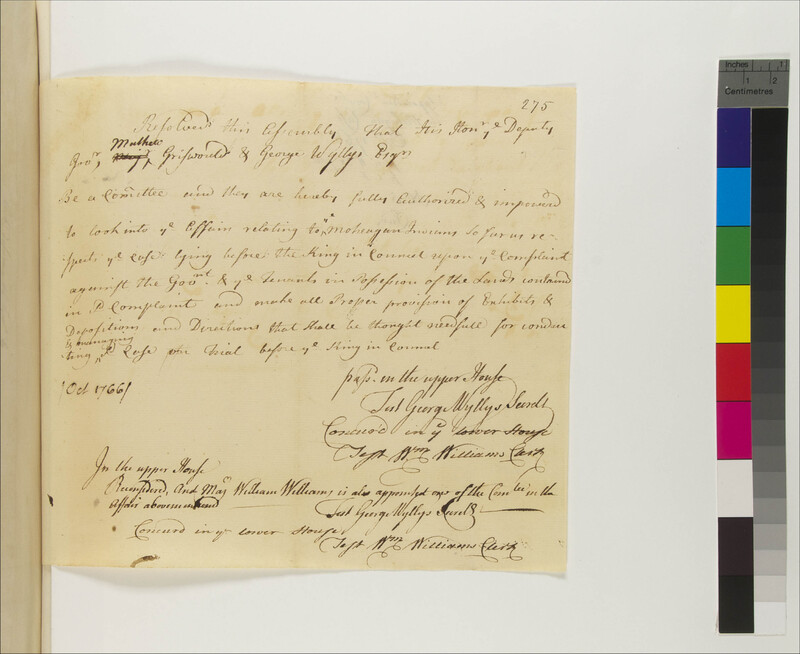 275
Resolved this Assembly that His Honr ye Deputy
Mathew
Govr, Griswould & George Wyllys Esqrs
Be a Comittee and they are hereby fully Authorized & impowred
to look into ye Affairs relating to ye Moheagan Indians so far as re-
spects ye Case lying before the King in Council upon ye Complaint
against the Govmt & ye Tenants in Possession of the Lands contained
in sd Complaint and make all Proper provision of Exhibits &
Depositions and Directions that shall be thought needfull for conduc
& managing
ting sd Case on Trial before ye King in Council
(Oct 1766)
pass'd in the upper House
Test George Wyllys Secrety
Concur'd in ye lower House
Test Wm Williams Clerk
In the upper House
Reconsidered, And Maj William Williams is also appointed one of the Comtee in the
Affair abovementioned
Test George Wyllys Secrety
Concurd in ye lower House
Test Wm Williams Clerk
Inches
1
2
Centimetres